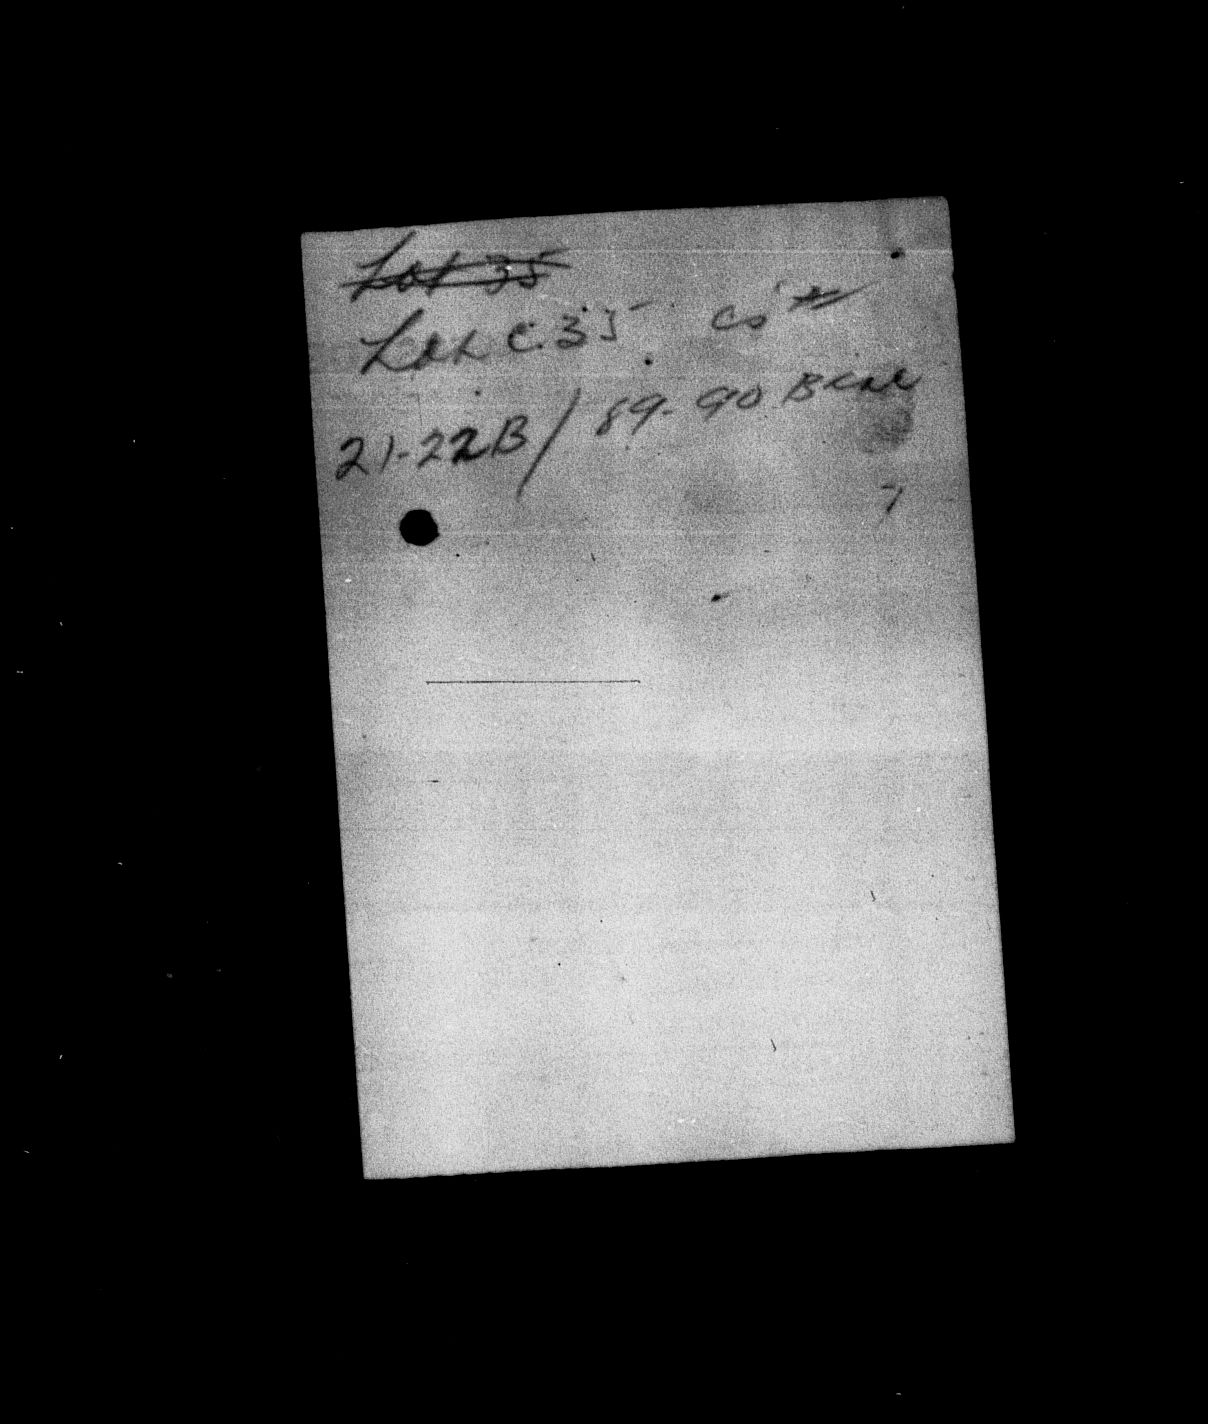 Lot 35
Lot C. 35
21-22B / 89-90 B
7